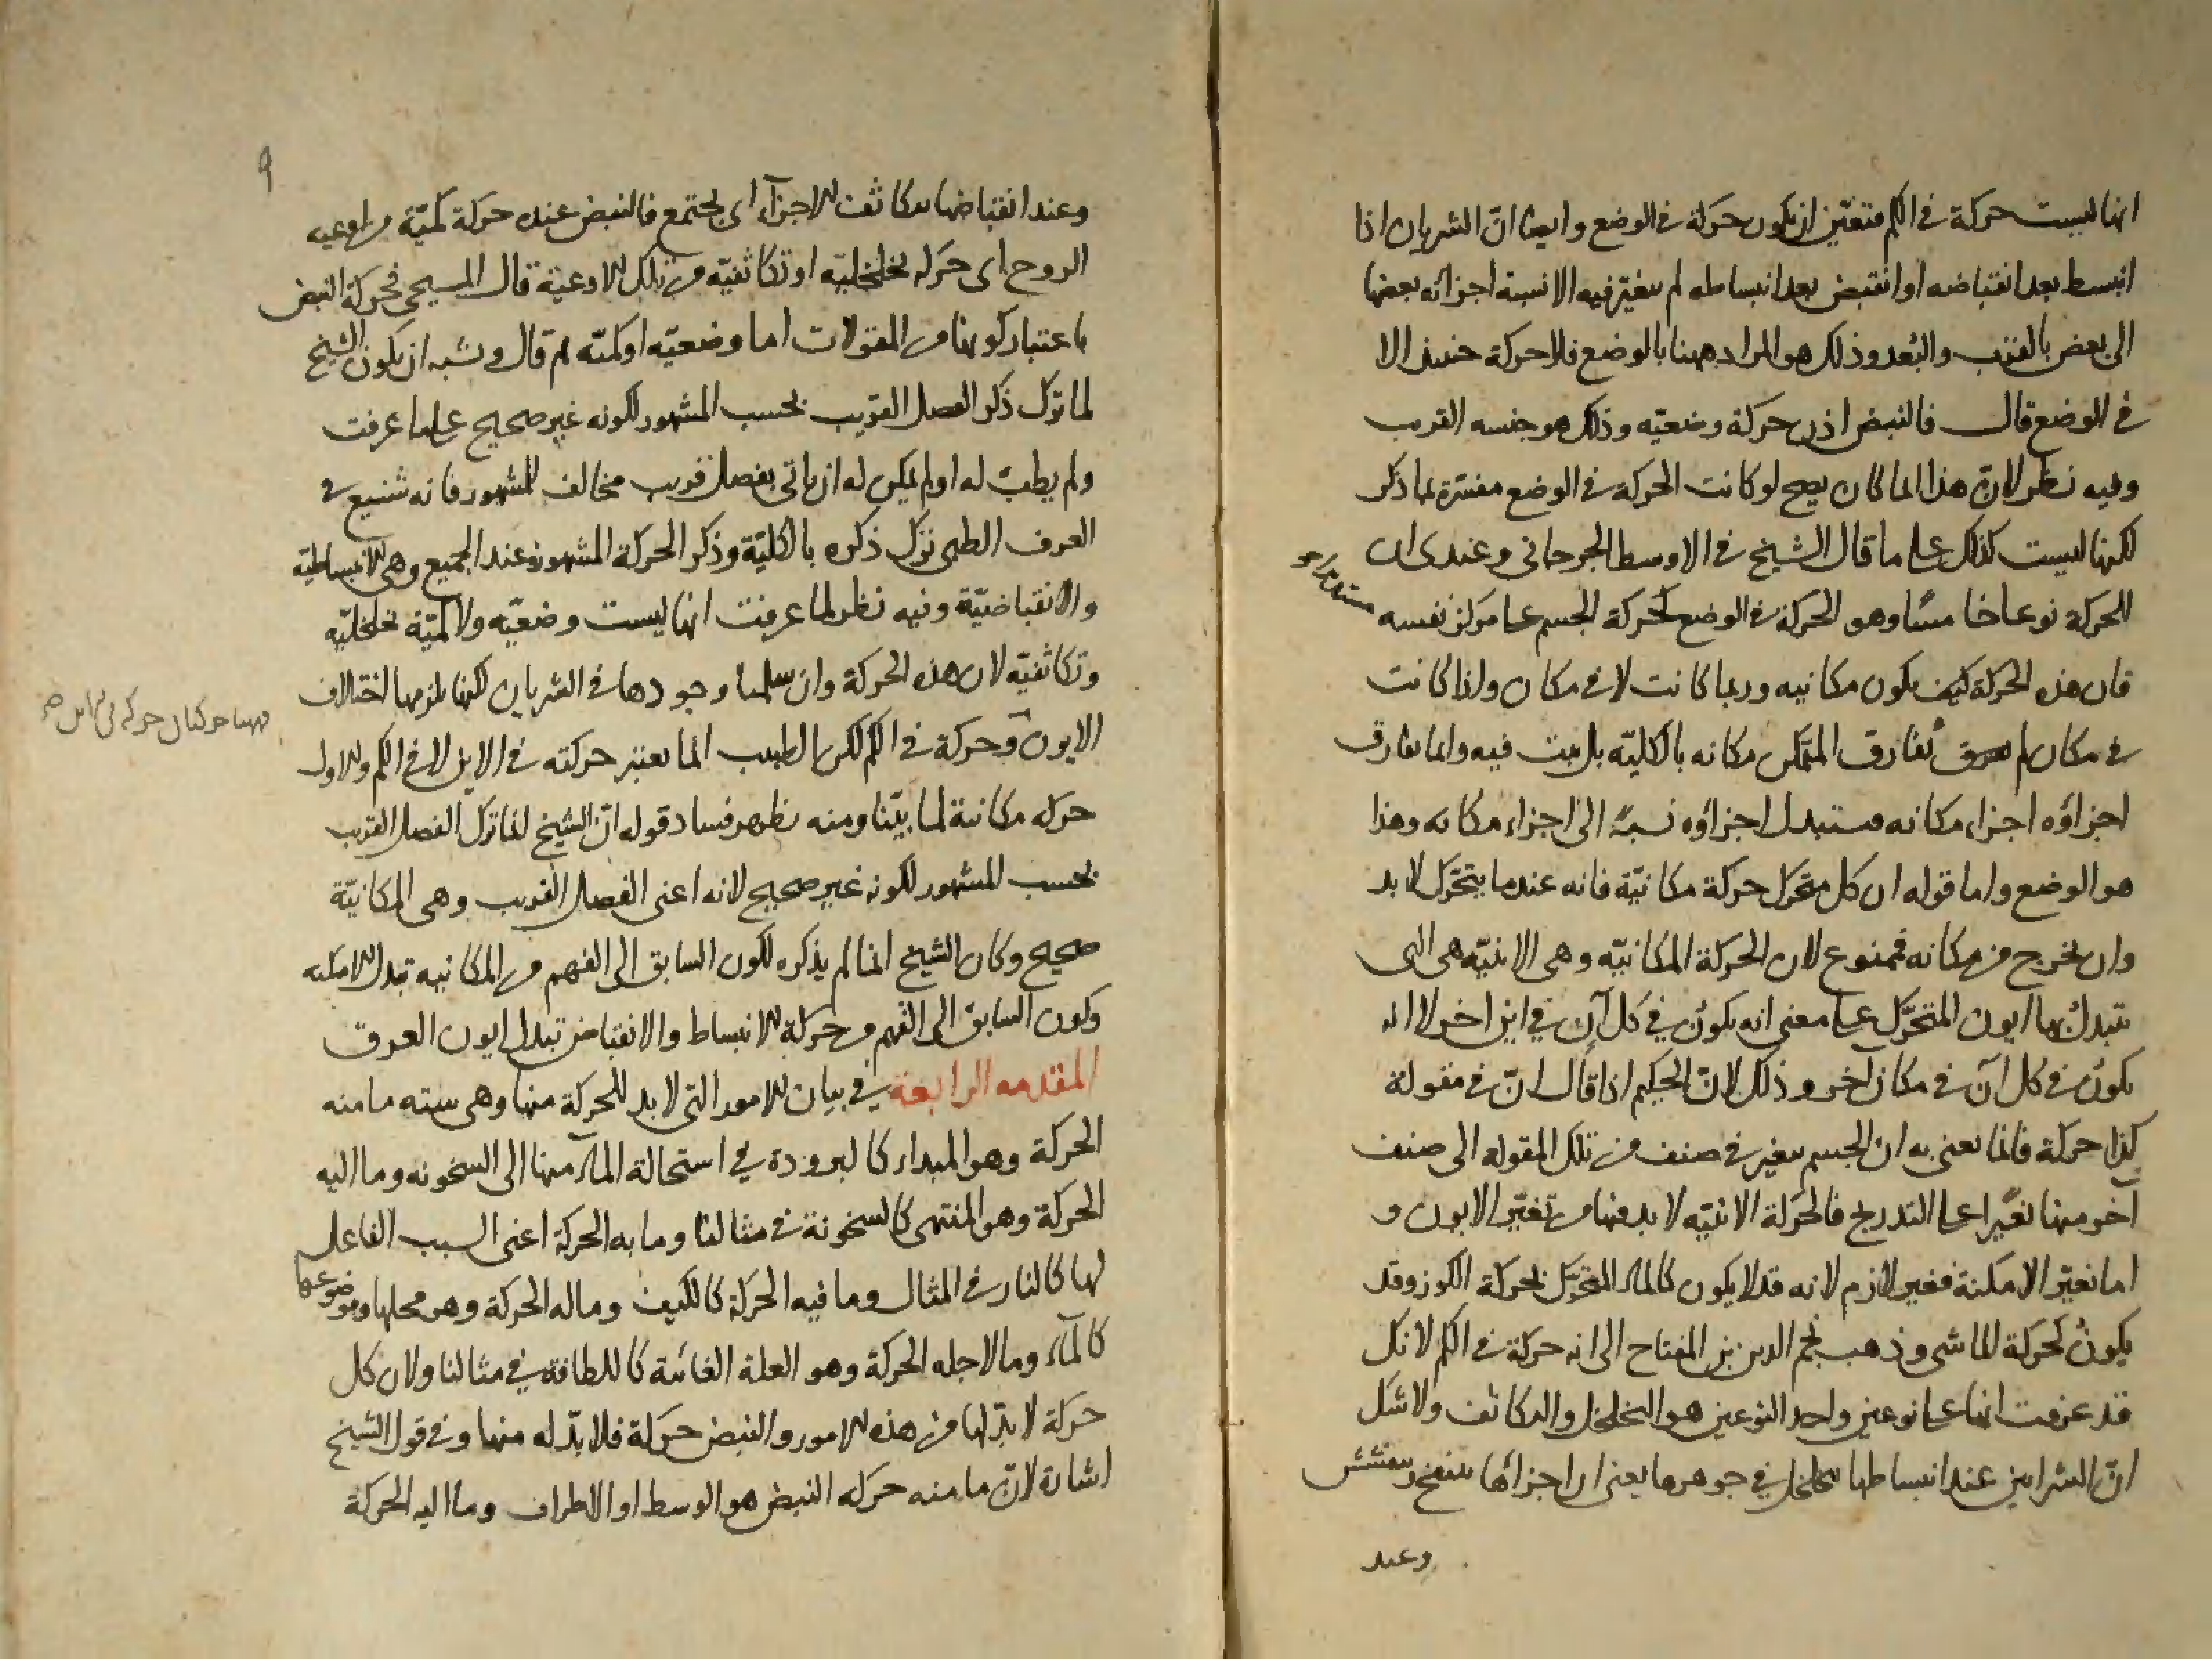 انها ليست حركة في الكم فتعين ان يكون حركة في الوضع وايضا انّ الشريان اذا
انبسط بعد انقباضه او انقبض بعد انبساطه لم يتغير فيه الا نسبة اجزائه بعضها
الى بعض بالقرب والبُعد وذلك هو المراد ههنا بالوضع فلا حركة حينئذ الا
في الوضع قال فالنبض اذن حركة وضعيّه وذلك هو جنسه القريب
وفيه نظر لانّ هذا انما كان يصح لو كانت الحركة في الوضع مفسّرة بما ذكر
لكنها ليست كذلك على ما قال الشيخ في الاوسط الجرجاني وعندى ان
للحركة نوعا خامسًا وهو الحركة في الوضع كحركة الجسم على مركز نفسه مستديرة
فان هذه الحركة كيف يكون مكانيه وربما كانت لا في مكان واذا كانت
في مكان لم يفارق المتمكن مكانه بالكليّه بل يثبت فيه وانما يفارق
اجزاؤه اجزاء مكانه فيتبدل اجزاؤه نسبةً الى اجزاء مكانه وهذا
هو الوضع واما قوله ان كل متحرّك حركة مكانيّة فانه عندما يتحرّك لا بد
وان يخرج من مكانه فممنوع لان الحركة المكانيّه وهى الاينيّه هى التى
يتبدل بها ايون المتحرّك على معنى انه يكون في كل آن في اين اخر لا انه
يكون في كل آن في مكان آخر وذلك لانّ الحكيم اذا قال انّ في مقولة
كذا حركة فانما يعنى به ان الجسم يتغير في صنف من تلك المقولة الى صنف
آخر منها تغيّرا على التدريج فالحركة الاينيّه لا بد فيها من تغيّر الايون و
اما تغيّر الامكنة فغير لازم لانه قد لا يكون كالماء المتحرّك بحركة الكوز وقد
يكون كحركة الماشى وذهب نجم الدين بن المفتاح الى انه حركة في الكم لانك
قد عرفت انها على نوعين واحد النوعين هو التخلخل والتكاثف ولا شك
انّ الشرايين عند انبساطها يتخلخل في جوهرها يعنى ان اجزائها ينتفخ وينتفش
وعند
٩
وعند انقباضها يتكاثف الاجزآء اى يجتمع فالنبض عنده حركة كميّة من اوعيه
الروح اى حركه تخلخليّه او تكاثفيّه من تلك الاوعية قال المسيحي فحركة النبض
باعتبار كونها من المقولات اما وضعيّه او كميّه ثم قال ويشبه ان يكون الشيخ
لما ترك ذكر الفصل القريب بحسب المشهور لكونه غير صحيح على ما عرفت
ولم يطب له او لم يمكن له ان ياتى بفصل قريب مخالف للمشهور فانه شنيع في
العرف الطبى ترك ذكره بالكليّة وذكر الحركة المشهورة عند الجميع وهى الانبساطيّه
والانقباضيّة وفيه نظر لما عرفت انها ليست وضعيّه ولا كميّه تخلخليّه
وتكاثفيّه لان هذه الحركة وان سلمنا وجودها في الشريان لكنها يلزمها اختلاف
فههنا حركتان حركة في الاين
الايون وحركة في الكم لكن الطبيب انما يعتبر حركته في الاين لا في الكم والاول
حركه مكانية لما بيّنا ومنه يظهر فساد قوله انّ الشيخ انما ترك الفصل القريب
بحسب المشهور لكونه غير صحيح لانه اعنى الفصل القريب وهى المكانيّة
صحيح وكان الشيخ انما لم يذكره لكون السابق الى الفهم من المكانيه تبدل الامكنه
وكون السابق الى الفهم من حركة الانبساط والانقباض تبدل ايون العرق
المقدمه الرابعة في بيان الامور التى لا بد للحركة منها وهى سته ما منه
الحركة وهو المبداء كالبرودة في استحالة المآء منها الى السخونه وما اليه
الحركة وهو المنتهى كالسخونة في مثالنا وما به الحركة اعنى السبب الفاعل
لها كالنار في المثال وما فيه الحركة كالكيف وما له الحركة وهو محلها وموضوعها
كالمآء وما لاجله الحركة وهو العلة الغائية كاللطافة في مثالنا ولان كل
حركة لا بدّ لها من هذه الامور والنبض حركة فلا بدّ له منها وفي قول الشيخ
اشارة لانّ ما منه حركه النبض هو الوسط او الاطراف وما اليه الحركة